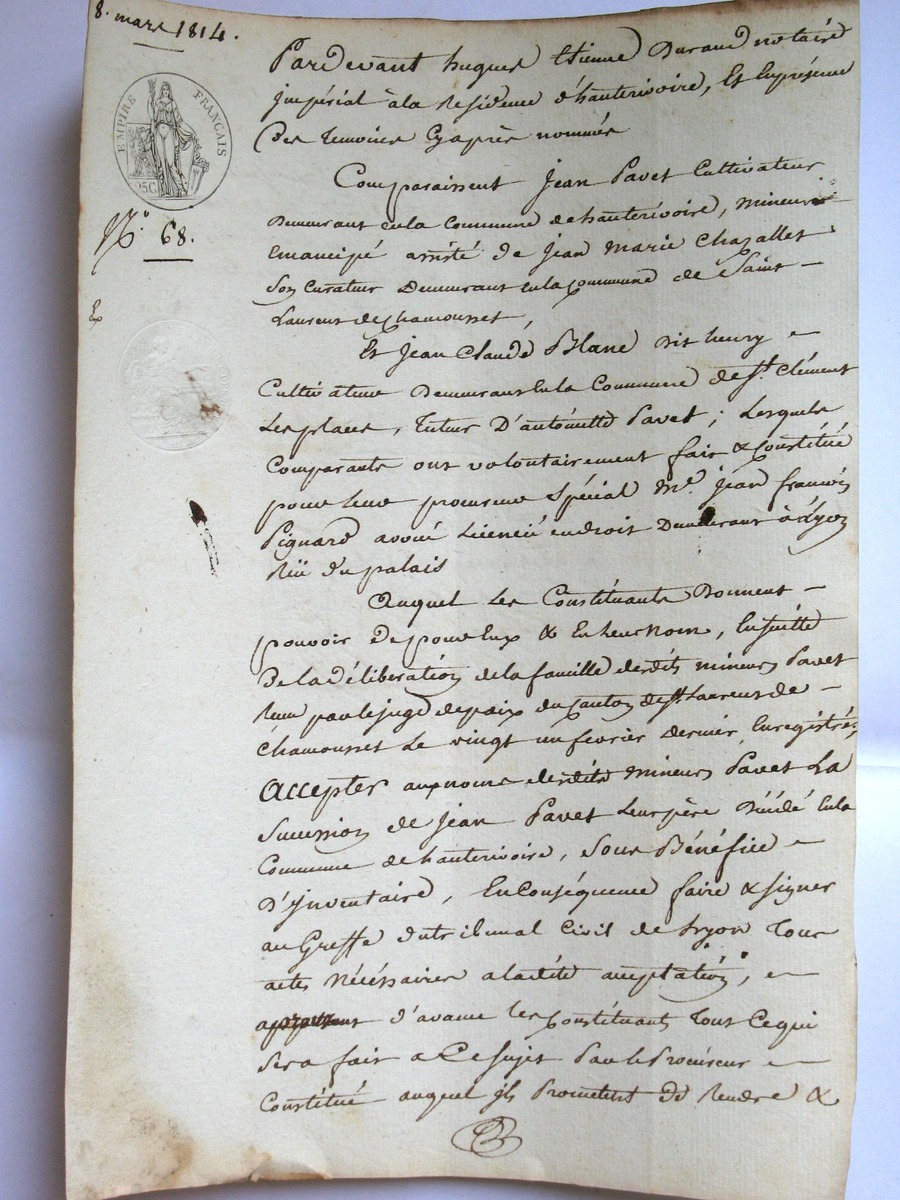 8. mars 1814.
EMPIRE FRANÇAIS
25C
N.° 68.
Ex
Pardevant hugues Etienne Durand notaire
jmpérial à la Residence d'hauterivoire, Et En présence
Des temoins Cyaprès nommés
Comparaissent jean Pavet Cultivateur
Demeurant en la Commune de hauterivoire, mineur
Emancipé assisté de jean marie Chazallet
Son Curateur Demeurant en la Commune de Saint
Laurent de Chamousset,
Et jean Claude Blanc dit henry
Cultivateur Demeurant En la Commune de St. Clément
Les places, Tuteur D'antoinette Pavet; Lesquels
Comparants ont volontairement fait & Constitué
pour leur procureur Spécial Me. jean françois
Pignard avoué Licencié en droit Demeurant à Lyon
Rüe du palais
Auquel Les Constituants Donnent
pouvoir de pour Eux & En Leur Nom, En suitte
De la déliberation de la famille desdits mineurs Pavet
tenue par le juge de paix du Canton de St. Laurent de
Chamousset Le vingt un fevrier Dernier, Enregistrée,
Accepter aux noms desdits mineurs Pavet La
Succession de jean Pavet Leur père Décédé En la
Commune de hauterivoire, Sous Bénéfice
D'jnventaire, En Conséquence faire & Signer
au Greffe du tribunal Civil de Lyon Tous
actes Nécéssaires a ladite acceptation,
d'avance les Constituants Tout Ce qui
Sera fait a Ce Sujet Par le Procureur
Constitué auquel jls Promettent de Rendre &